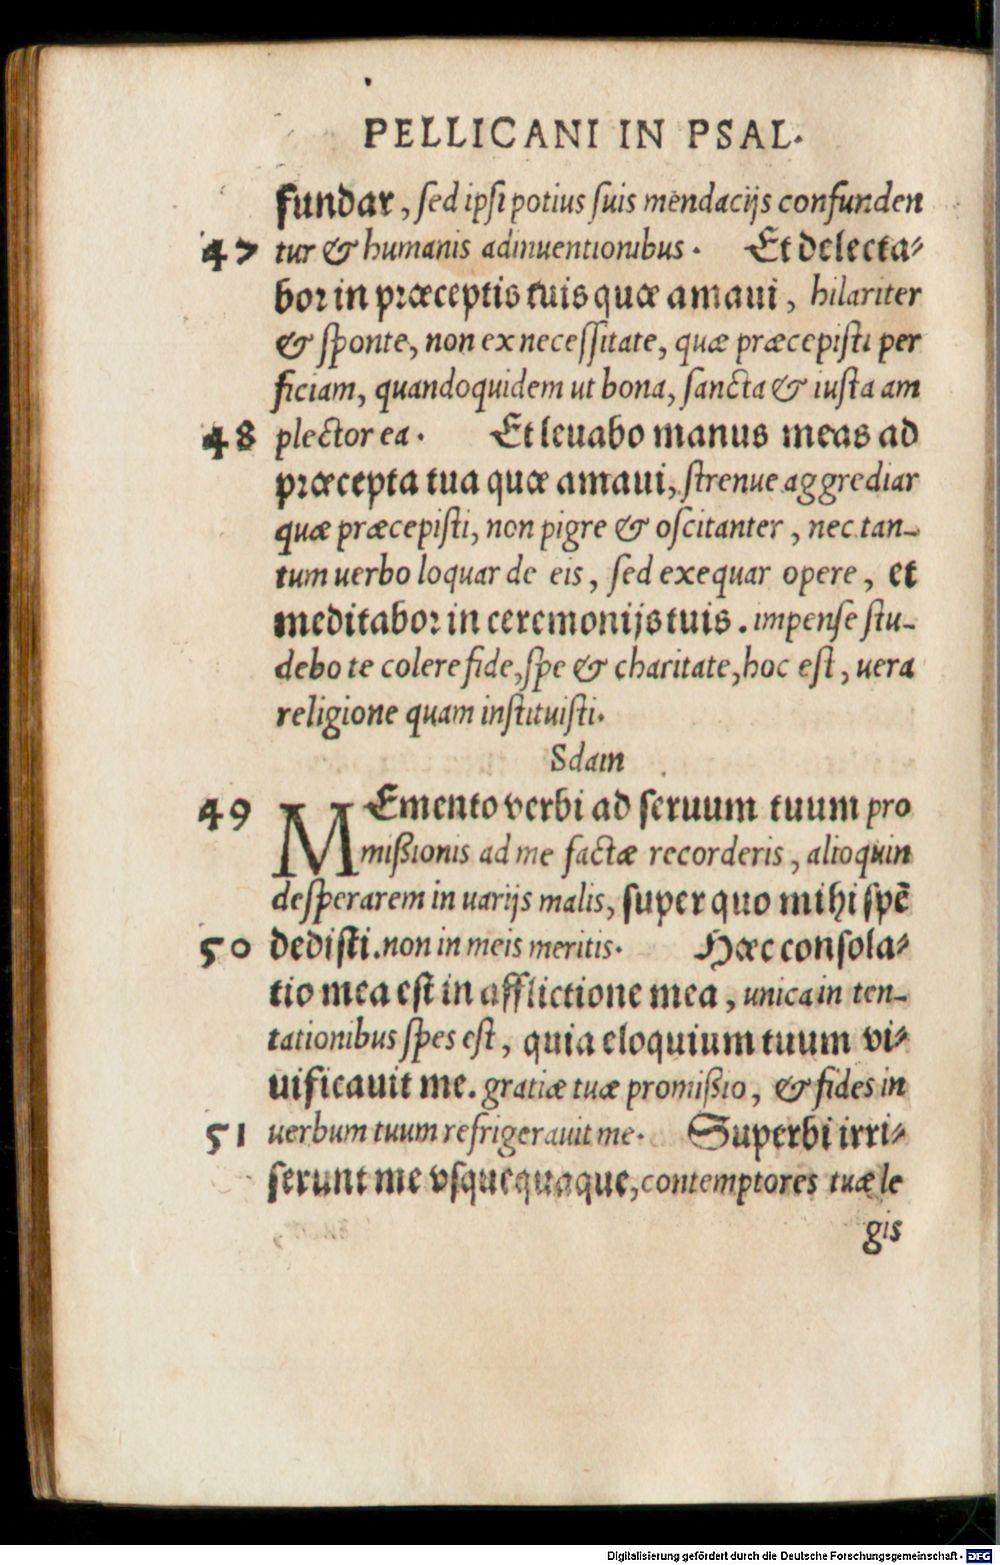 PELLICANI IN PSAL.
fundar, sed ipsi potius suis mendacijs confunden
47 tur & humanis adinuentionibus. Et delecta⸗
bor in præceptis tuis quæ amaui, hilariter
& sponte, non ex necessitate, quæ præcepisti per
ficiam, quandoquidem ut bona, sancta & iusta am
48 plector ea. Et leuabo manus meas ad
præcepta tua quæ amaui, strenue aggrediar
quæ præcepisti, non pigre & oscitanter, nec tan-
tum uerbo loquar de eis, sed exequar opere, et
meditabor in ceremonijs tuis. impense stu-
debo te colere fide, spe & charitate, hoc est, uera
religione quam instituisti.
Sdain
49 MEmento verbi ad seruum tuum pro
mißionis ad me factæ recorderis, alioquin
desperarem in uarijs malis, super quo mihi spē
50 dedisti. non in meis meritis. Hæc consola⸗
tio mea est in afflictione mea, unica in ten-
tationibus spes est, quia eloquium tuum vi⸗
uificauit me. gratiæ tuæ promißio, & fides in
51 uerbum tuum refrigerauit me. Superbi irri⸗
serunt me vsquequaque, contemptores tuæ le
gis
Digitalisierung gefördert durch die Deutsche Forschungsgemeinschaft - DFG